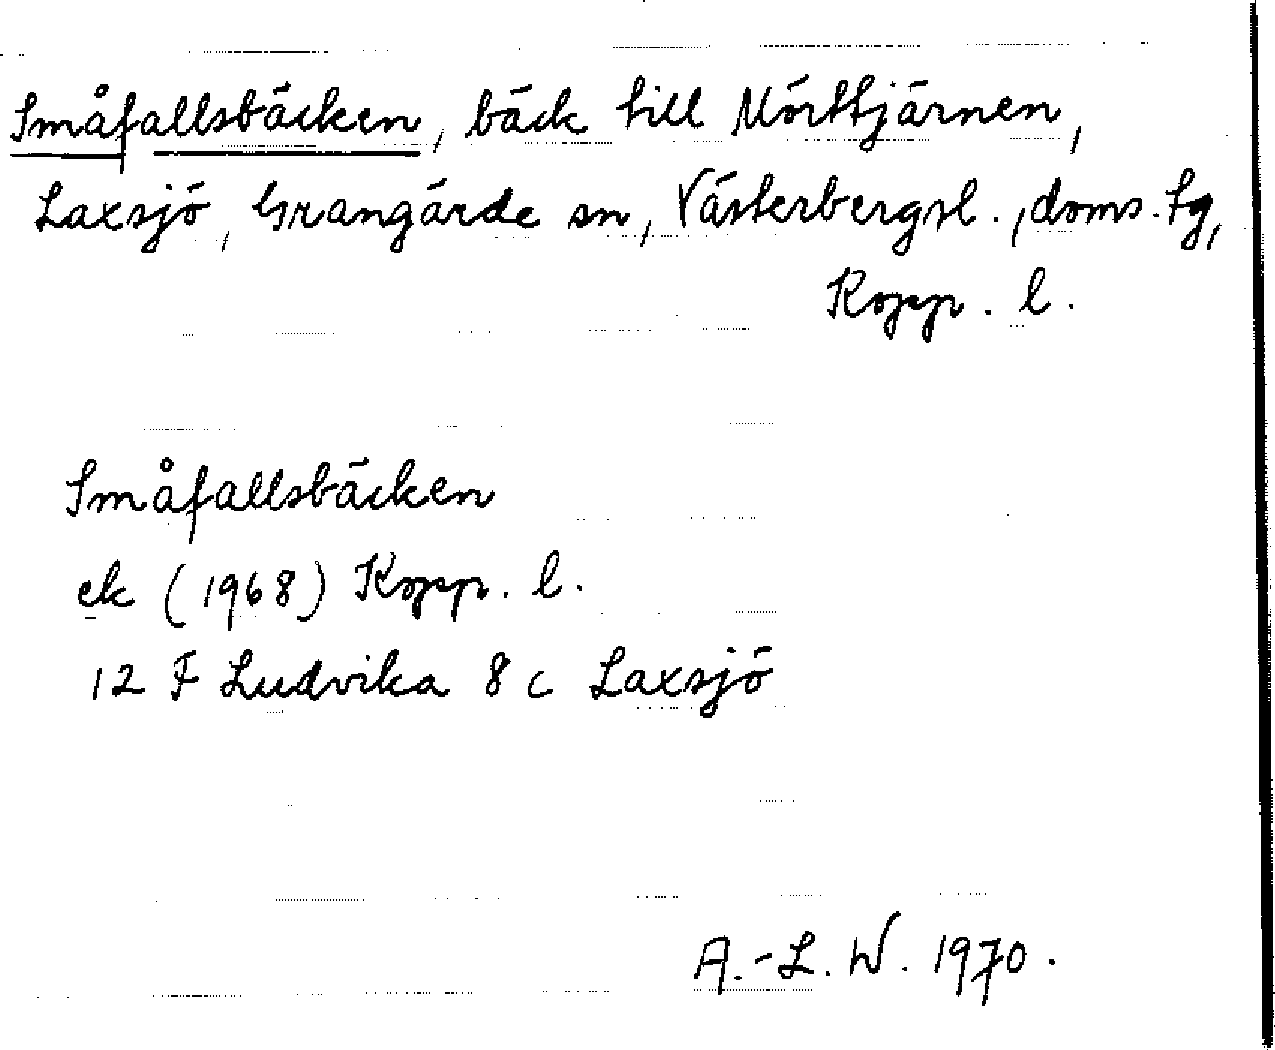 Småfallsbäcken, bäck till Mörttjärnen,
Laxsjö, Grangärde sn, Västerbergsl., doms. tg,
Kopp. l.
Småfallsbäcken
ek (1968) Kopp. l.
12 F Ludvika 8 c Laxsjö
A.-L. W. 1970.